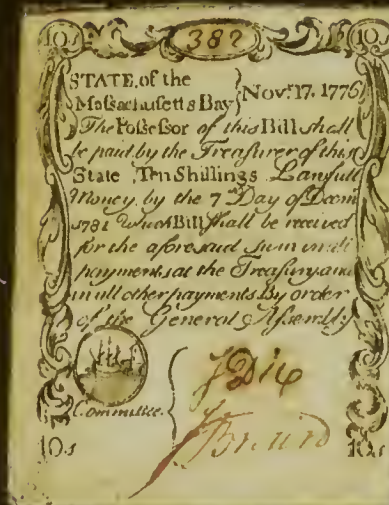 10s 382 10s
STATE, of the
Massachusetts Bay } Novr. 17. 1776
The Possessor of this Bill shall
be paid by the Treasurer of this
State Ten Shillings Lawfull
Money, by the 7th Day of Decm
1781 which Bill shall be received
for the aforesaid Sum in all
payments at the Treasury and
in all other payments By order
of the General Assembly
Committee. { J Dix
10s 10s